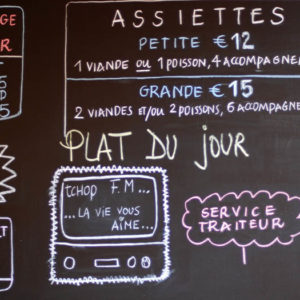 ASSIETTES
PETITE €12
1 VIANDE OU 1 POISSON, 4 ACCOMPAGNE
GRANDE €15
2 VIANDES ET/OU 2 POISSONS, 6 ACCOMPAGNE
PLAT DU JOUR
tCHOP F.M...
...LA VIE VOUS
AIME...
SERVICE
TRAITEUR